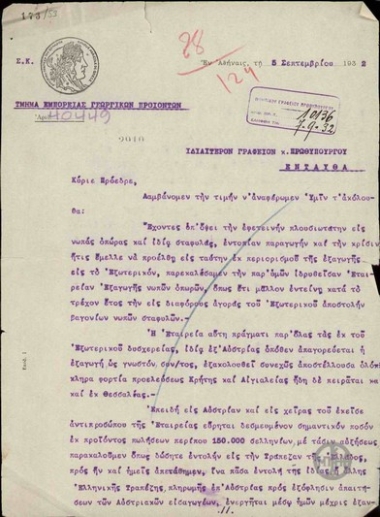 173/5
28
124
Σ.Κ.
Ἐν Ἀθήναις, τῇ 5 Σεπτεμβρίου 1932
ΤΜΗΜΑ ΕΜΠΟΡΕΙΑΣ ΓΕΩΡΓΙΚΩΝ ΠΡΟΙΟΝΤΩΝ
40449
10136
7-9-32
ΙΔΙΑΙΤΕΡΟΝ ΓΡΑΦΕΙΟΝ κ. ΠΡΩΘΥΠΟΥΡΓΟΥ
ΕΝΤΑΥΘΑ
Κύριε Πρόεδρε,
Λαμβάνομεν τὴν τιμὴν ν'ἀναφέρωμεν Ὑμῖν τ'ἀκόλου-
θα:
Ἔχοντες ὑπ'ὄψει τὴν ἐφετεινὴν πλουσιωτάτην εἰς
νωπὰς ὀπώρας καὶ ἰδίᾳ σταφυλάς, ἐντοπίαν παραγωγὴν καὶ τὴν κρίσιν
ἥτις ἔμελλε νὰ προέλθῃ εἰς ταύτην ἐκ περιορισμοῦ τῆς ἐξαγωγῆς
εἰς τὸ Ἐξωτερικόν, παρεκαλέσαμεν τὴν παρ'ἡμῶν ἱδρυθεῖσαν Ἑται-
ρείαν Ἐξαγωγῆς νωπῶν ὀπωρῶν, ὅπως ἔτι μᾶλλον ἐντείνῃ κατὰ τὸ
τρέχον ἔτος τὴν εἰς διαφόρους ἀγορὰς τοῦ Ἐξωτερικοῦ ἀποστολὴν
βαγονίων νωπῶν σταφυλῶν.
Ἡ Ἑταιρεία αὕτη πράγματι παρ'ὅλας τὰς ἐκ τοῦ
Ἐξωτερικοῦ δυσχερείας, ἰδίᾳ ἐξ Αὐστρίας ὁπόθεν ἀπαγορεύεται ἡ
ἐξαγωγὴ ὡς γνωστὸν συν/τος, ἐξακολουθεῖ συνεχῶς ἀποστέλλουσα ὁλό-
κληρα φορτία προελεύσεως Κρήτης καὶ Αἰγιαλείας ἤδη δὲ πειρᾶται κα
καὶ ἐκ Θεσσαλίας.
Ἐπειδὴ εἰς Αὐστρίαν καὶ εἰς χεῖρας τοῦ ἐκεῖσε
ἀντιπροσώπου τῆς Ἑταιρείας εὕρηται δεσμευμένον σημαντικὸν ποσὸν
ἐκ προϊόντος πωλήσεων περίπου 150.000 σελληνίων, μὲ τάσεις αὐξήσεως
παρακαλοῦμεν ὅπως δώσητε ἐντολὴν εἰς τὴν Τράπεζαν τῆς Ἑλλάδος,
πρὸς ἣν καὶ ἡμεῖς ἀπετάθημεν, ἵνα πᾶσα ἐντολὴ τῆς ἰδίας ἢ ἄλλης
Ἑλληνικῆς Τραπέζης, πληρωμῆς ἐπ'Αὐστρίας πρὸς ἐξόφλησιν ἀπαιτή-
σεων τῶν Αὐστριακῶν εἰσαγωγέων, ἐνεργῆται μέσῳ ἡμῶν μέχρις ἐξαν-
.//.